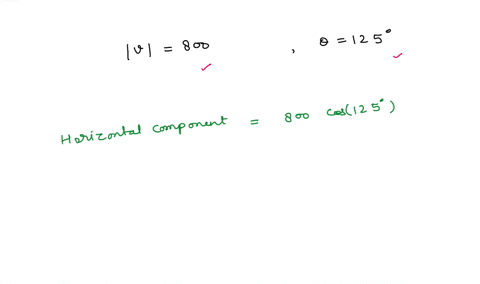 |v| = 800 , θ = 125°
Horizontal component = 800 cos(125°)